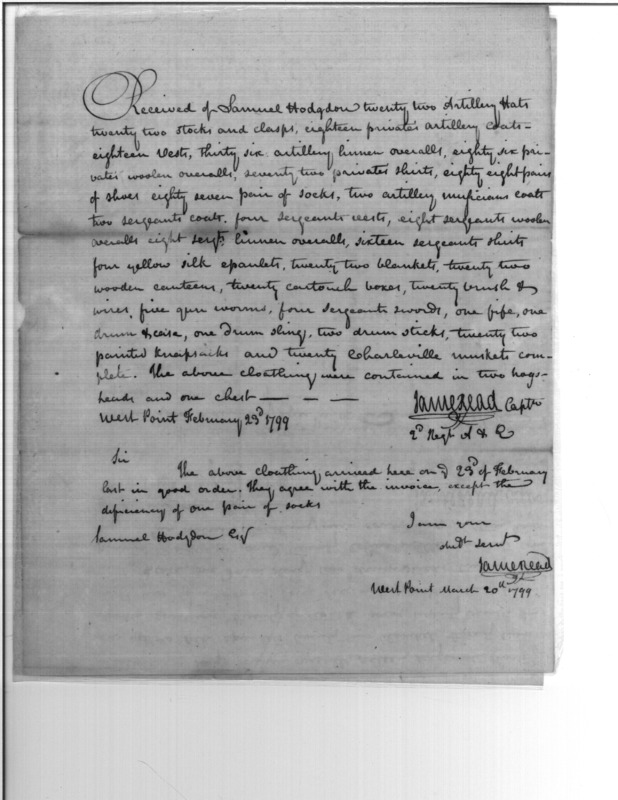 Received of Samuel Hodgdon twenty two Artillery Hats
twenty two stocks and clasps, eighteen privates artillery coats-
eighteen vests, thirty six artillery linnen overalls, eighty six pri-
vates woolen overalls, seventy two privates shirts, eighty eight pairs
of shoes eighty seven pair of socks, two artillery musicians coats
two sergeants coats, four sergeants vests, eight sergeants woolen
overalls eight sergts linnen overalls, sixteen sergeants shirts
four yellow silk epaulets, twenty two blankets, twenty two
wooden canteens, twenty cartouch boxes, twenty brush &
wires, five gun worms, four sergeants swords, one fife, one
drum & case, one drum sling, two drum sticks, twenty two
painted knapsacks and twenty Charleville muskets com-
plete. The above cloathing were contained in two hogs-
heads and one chest — — —
West Point February 23d 1799
James Read Captn
2d Regt A & E
Sir
The above cloathing arrived here on ye 23d of February
last in good order. They agree with the invoice, except the
deficiency of one pair of socks
I am your
obedt servt
Samuel Hodgdon Esqr
James Read
West Point March 20th 1799